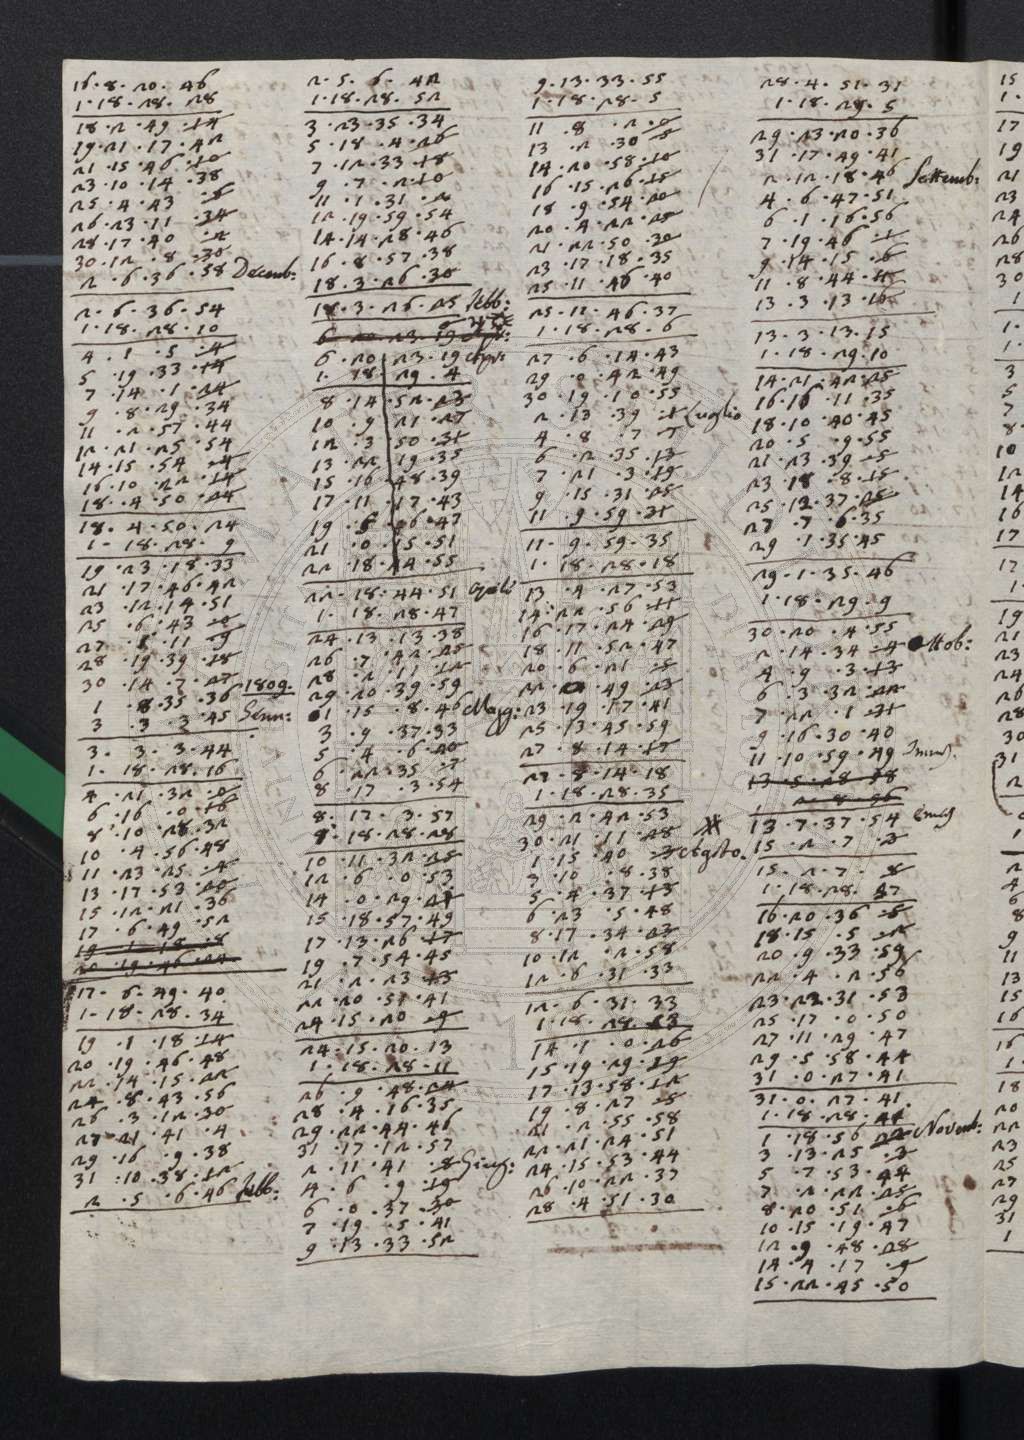 16·8·20·46
1·18·28·28
18·2·49·14
19·21·17·42
21·15·46·10
23·10·14·38
25·4·43·5
26·23·11·34
28·17·40·2
30·12·8·30
2·6·36·58 Decemb:
2·6·36·54
1·18·28·10
4·1·5·4
5·19·33·14
7·14·1·24
9·8·29·34
11·2·57·44
12·21·25·54
14·15·54·4
16·10·22·14
18·4·50·24
18·4·50·24
1·18·28·9
19·23·18·33
21·17·46·42
23·12·14·51
25·6·43·0
27·1·11·9
28·19·39·18
30·14·7·27
1·8·35·36 1809.
3·3·3·45 Genn:
3·3·3·44
1·18·28·16
4·21·32·0
6·16·0·16
8·10·28·32
10·4·56·48
11·23·25·4
13·17·53·20
15·12·21·36
17·6·49·52
19·1·18·8
20·19·46·24
17·6·49·40
1·18·28·34
19·1·18·14
20·19·46·48
22·14·15·22
24·8·43·56
26·3·12·30
27·21·41·4
29·16·9·38
31·10·38·12
2·5·6·46 Febb:
2·5·6·42
1·18·28·52
3·23·35·34
5·18·4·26
7·12·33·18
9·7·2·10
11·1·31·2
12·19·59·54
14·14·28·46
16·8·57·38
18·3·26·30
18·3·26·25 Febb:
6·20·23·19 Apr:
6·20·23·19 Apr:
1·18·29·4
8·14·52·23
10·9·21·27
12·3·50·31
13·22·19·35
15·16·48·39
17·11·17·43
19·5·46·47
21·0·15·51
22·18·44·55
22·18·44·51 Aprile
1·18·28·47
24·13·13·38
26·7·42·25
28·2·11·12
29·20·39·59
1·15·8·46 Magg:
3·9·37·33
5·4·6·20
6·22·35·7
8·17·3·54
8·17·3·57
1·18·28·28
10·11·32·25
12·6·0·53
14·0·29·21
15·18·57·49
17·13·26·17
19·7·54·45
21·2·23·13
22·20·51·41
24·15·20·9
24·15·20·13
1·18·28·11
26·9·48·24
28·4·16·35
29·22·44·46
31·17·12·57
2·11·41·8 Giug:
4·6·9·19
6·0·37·30
7·19·5·41
9·13·33·52
9·13·33·55
1·18·28·5
11·8·2·0
13·2·30·5
14·20·58·10
16·15·26·15
18·9·54·20
20·4·22·25
21·22·50·30
23·17·18·35
25·11·46·40
25·11·46·37
1·18·28·6
27·6·14·43
29·0·42·49
30·19·10·55
2·13·39·1 Luglio
4·8·7·7
6·2·35·13
7·21·3·19
9·15·31·25
11·9·59·31
11·9·59·35
1·18·28·18
13·4·27·53
14·22·56·11
16·17·24·29
18·11·52·47
20·6·21·5
22·0·49·23
23·19·17·41
25·13·45·59
27·8·14·17
27·8·14·18
1·18·28·35
29·2·42·53
30·21·11·28
1·15·40·3 Agosto.
3·10·8·38
5·4·37·13
6·23·5·48
8·17·34·23
10·12·2·58
12·6·31·33
12·6·31·33
1·18·28·53
14·1·0·26
15·19·29·19
17·13·58·12
19·8·27·5
21·2·55·58
22·21·24·51
24·15·53·44
26·10·22·37
28·4·51·30
28·4·51·31
1·18·29·5
29·23·20·36
31·17·49·41
2·12·18·46 Settemb:
4·6·47·51
6·1·16·56
7·19·46·1
9·14·15·6
11·8·44·11
13·3·13·16
13·3·13·15
1·18·29·10
14·21·42·25
16·16·11·35
18·10·40·45
20·5·9·55
21·23·39·5
23·18·8·15
25·12·37·25
27·7·6·35
29·1·35·45
29·1·35·46
1·18·29·9
30·20·4·55
2·14·34·4 Ottob:
4·9·3·13
6·3·32·22
7·22·1·31
9·16·30·40
11·10·59·49 Imm.
13·5·28·58
13·7·37·54 Emer
15·2·7·3
15·2·7·8
1·18·28·57
16·20·36·5
18·15·5·2
20·9·33·59
22·4·2·56
23·22·31·53
25·17·0·50
27·11·29·47
29·5·58·44
31·0·27·41
31·0·27·41
1·18·28·41
1·18·56·22 Novemb:
3·13·25·3
5·7·53·44
7·2·22·25
8·20·51·6
10·15·19·47
12·9·48·28
14·4·17·9
15·22·45·50